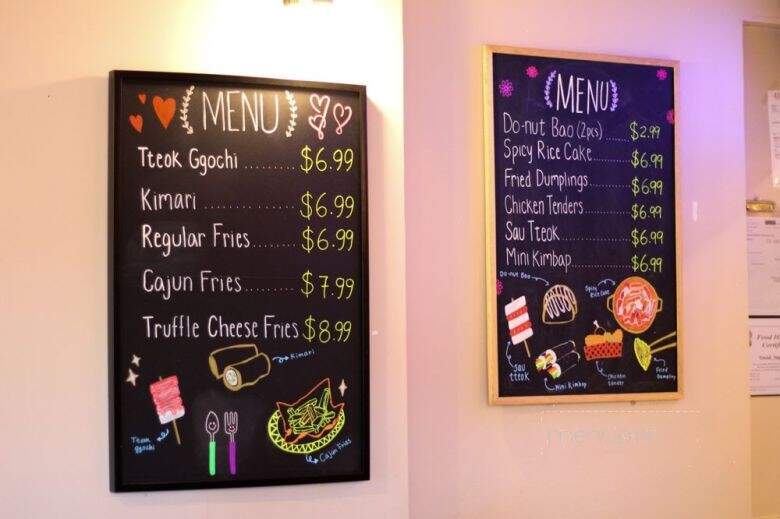 MENU
Tteok Ggochi ......... $6.99
Kimari ..................... $6.99
Regular Fries........ $6.99
Cajun Fries ......... $7.99
Truffle Cheese Fries $8.99
Kimari
Tteok
ggochi
Cajun Fries
MENU
Do-nut Bao (2pcs) ....... $2.99
Spicy Rice Cake........ $6.99
Fried Dumplings......... $6.99
Chicken Tenders.......... $6.99
Sau Tteok................ $6.99
Mini Kimbap............. $6.99
Do-nut Bao
Spicy
Rice Cake
Sau
tteok
Mini Kimbap
Chicken
tender
Fried
Dumpling